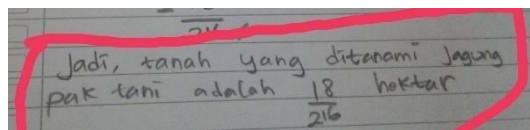 Jadi, tanah yang ditanami Jagung
pak tani adalah 18/216 hektar